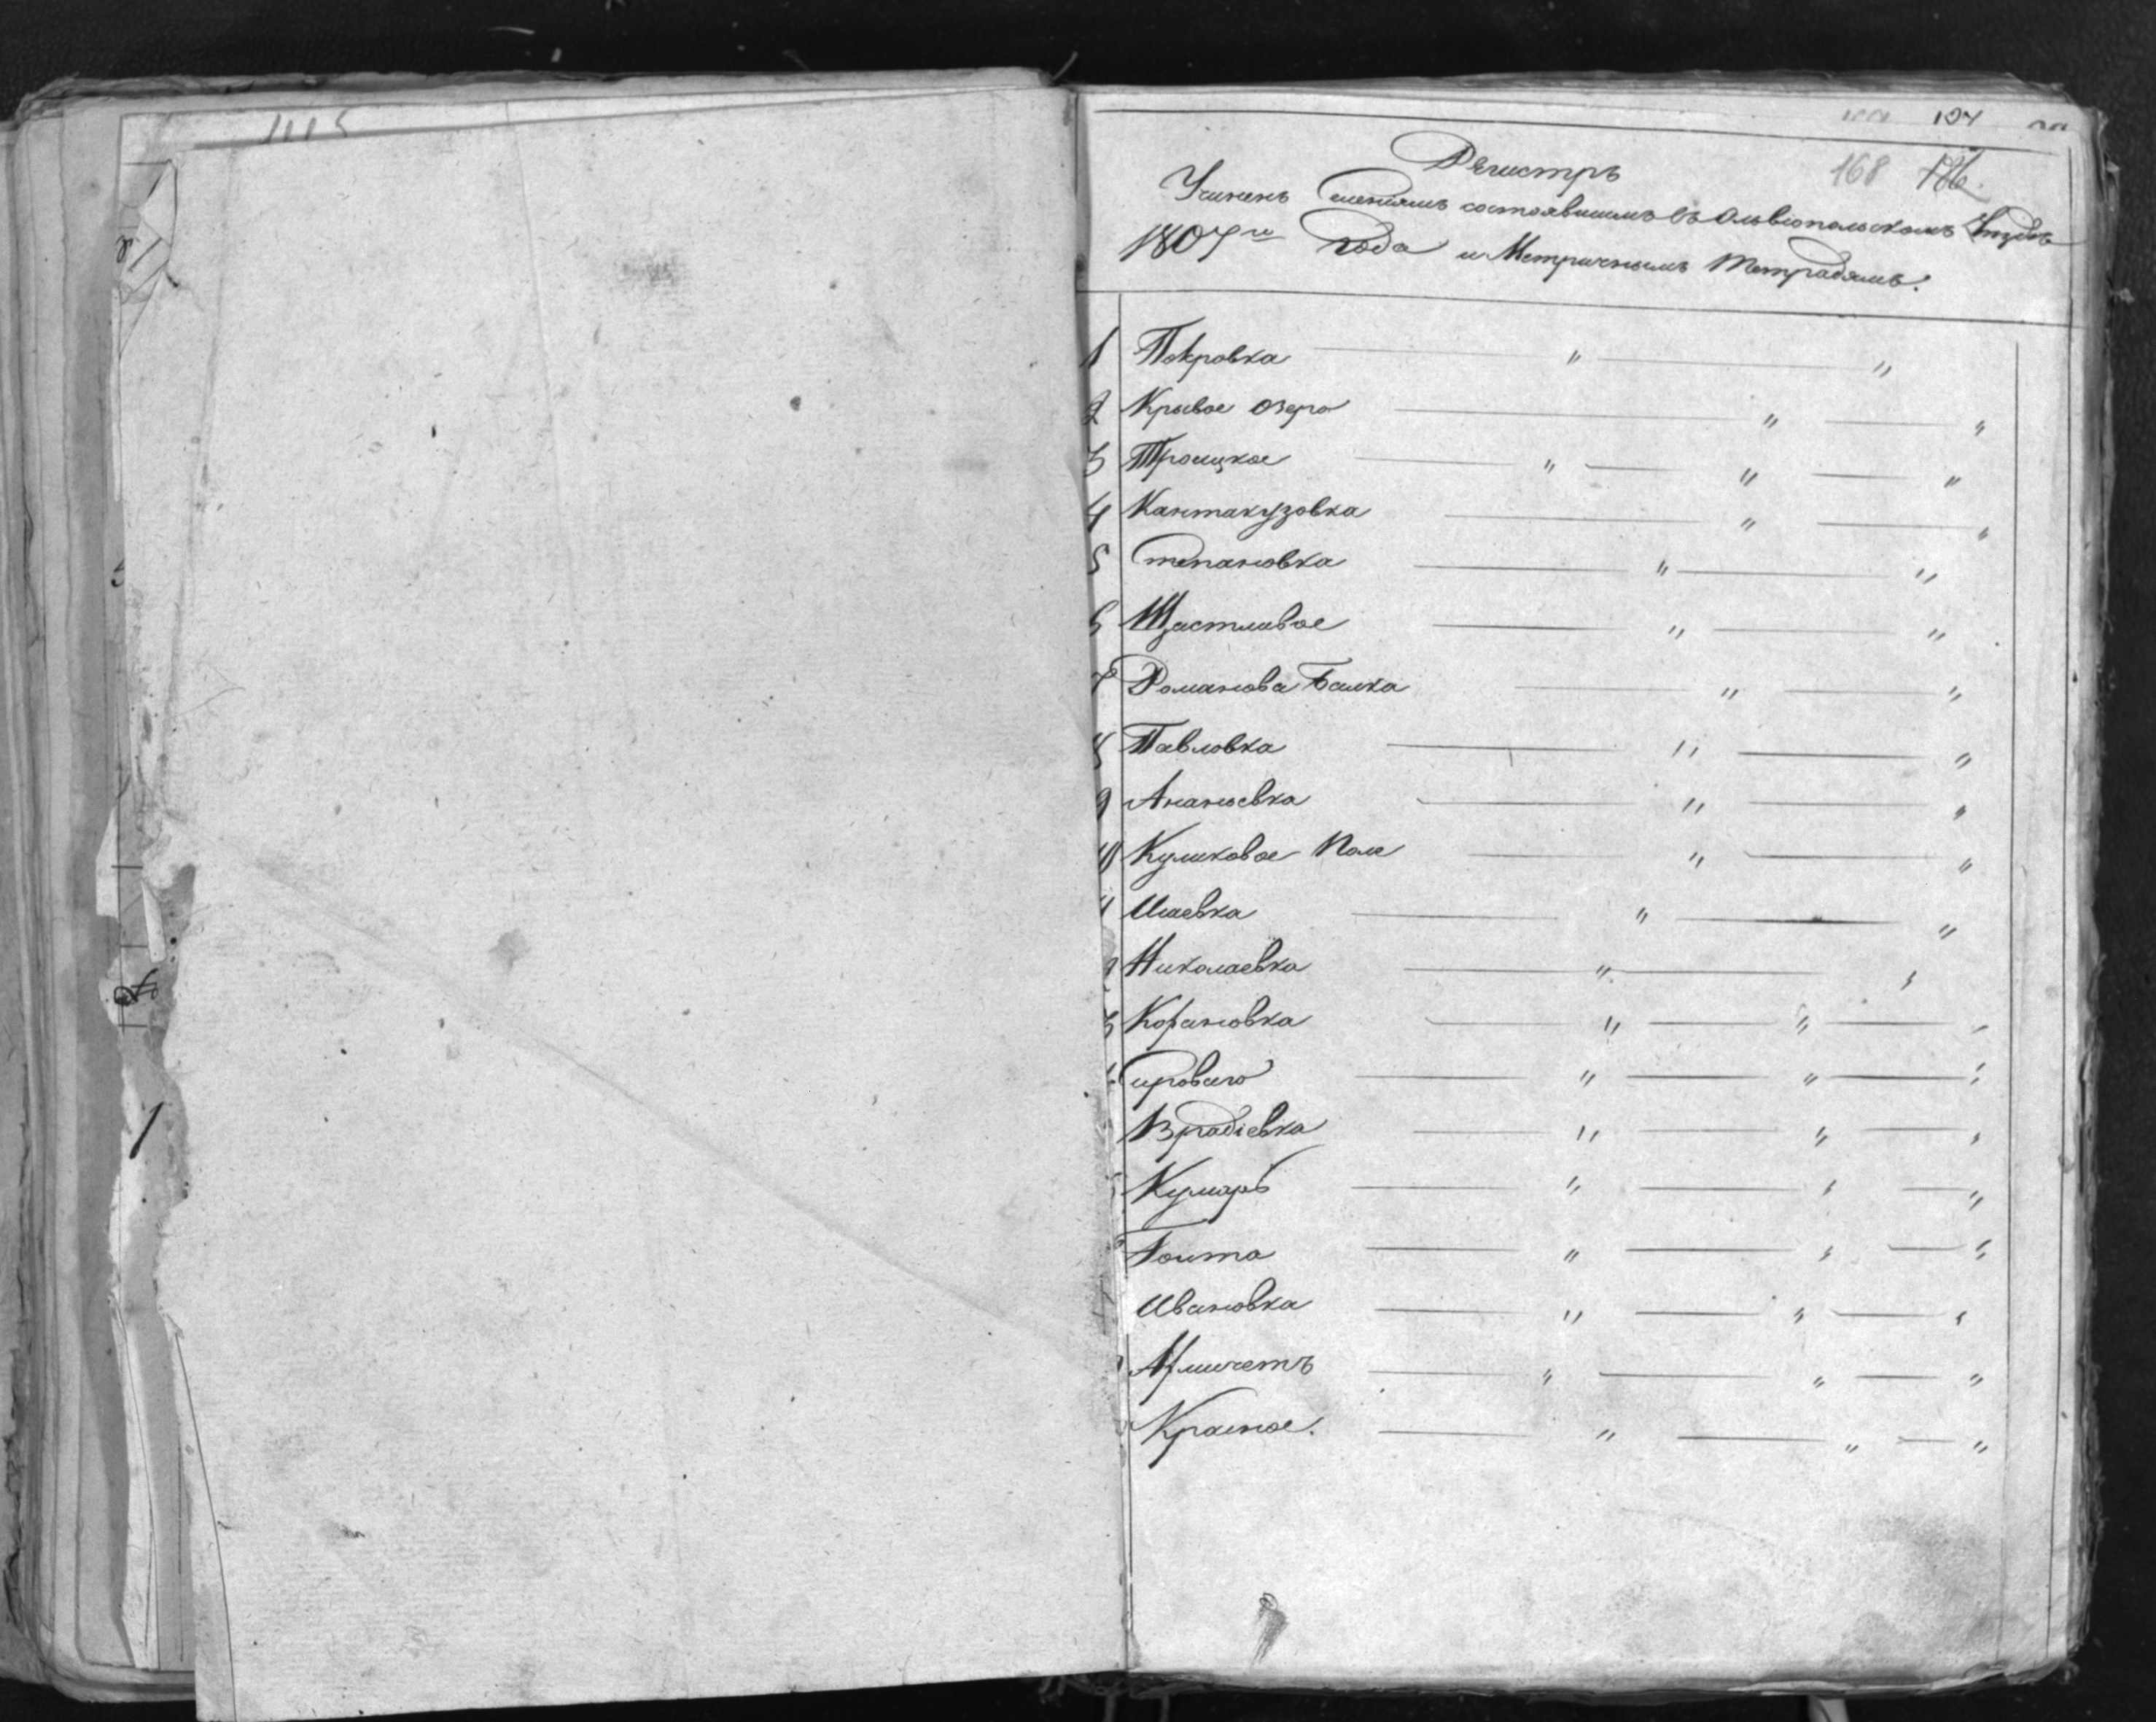 168
Регистръ
Учиненъ Селениямъ состоявшимъ въ Ольвіопольскомъ Уездѣ
1807го Года и Метричнымъ Тетрадямъ.
1 Покровка
2 Крывое Озеро
3 Троицкое
4 Кантакузовка
5 Степановка
6 Щастливое
7 Романова Балка
8 Павловка
9 Ананьевка
10 Куликовое Поле
11 Исаевка
Николаевка
Сироваго
Врадіевка
Кумаръ
Голта
Ивановка
Арличетъ
Красное.